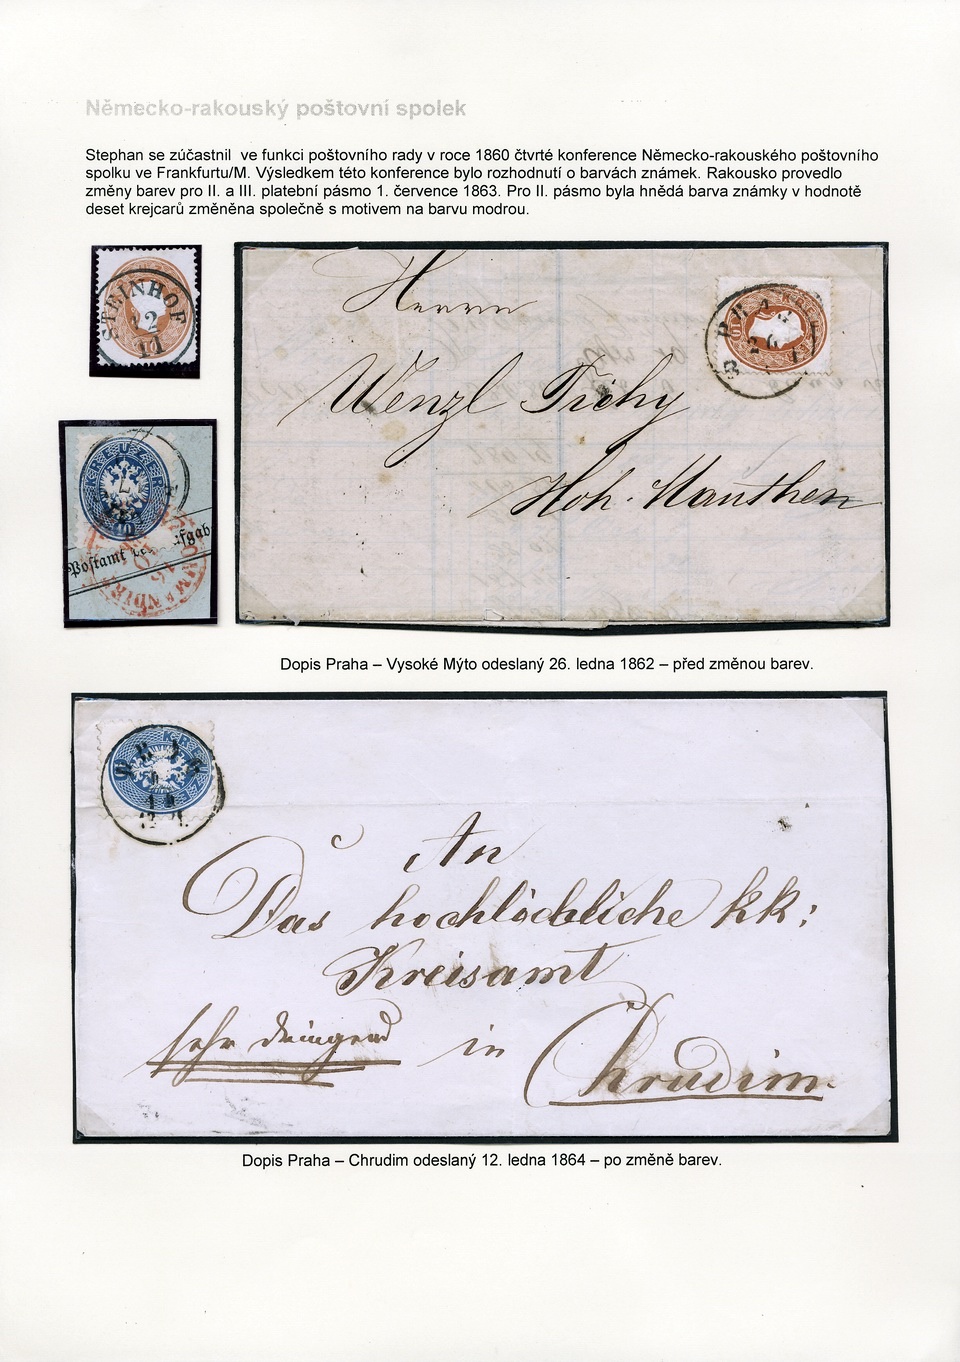 Německo-rakouský poštovní spolek
Stephan se zúčastnil  ve funkci poštovního rady v roce 1860 čtvrté konference Německo-rakouského poštovního
spolku ve Frankfurtu/M. Výsledkem této konference bylo rozhodnutí o barvách známek. Rakousko provedlo
změny barev pro II. a III. platební pásmo 1. července 1863. Pro II. pásmo byla hnědá barva známky v hodnotě
deset krejcarů změněna společně s motivem na barvu modrou.
STEINHOF
12
11
KREUZER
Postamt
Herrn
Wenzl Tichy
Hoh. Mauthen
KREU
10
26
Dopis Praha – Vysoké Mýto odeslaný 26. ledna 1862 – před změnou barev.
KREUZE
An
Das hochlöchliche kk:
Kreisamt
sehr dringend in Chrudim.
Dopis Praha – Chrudim odeslaný 12. ledna 1864 – po změně barev.